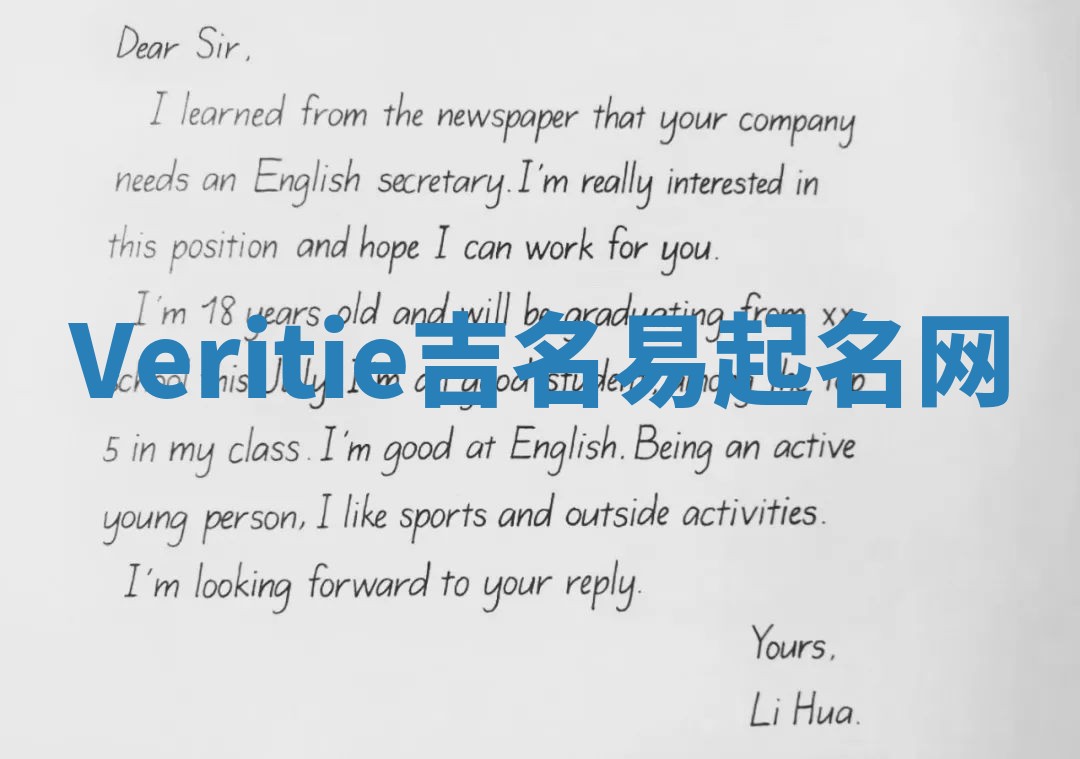 Dear Sir,
I learned from the newspaper that your company
needs an English secretary. I'm really interested in
this position and hope I can work for you.
I'm 18 years old and will be graduating from xx
Veritie吉名易起名网
school this July. I'm a good student, among the top
5 in my class. I'm good at English. Being an active
young person, I like sports and outside activities.
I'm looking forward to your reply.
Yours,
Li Hua.